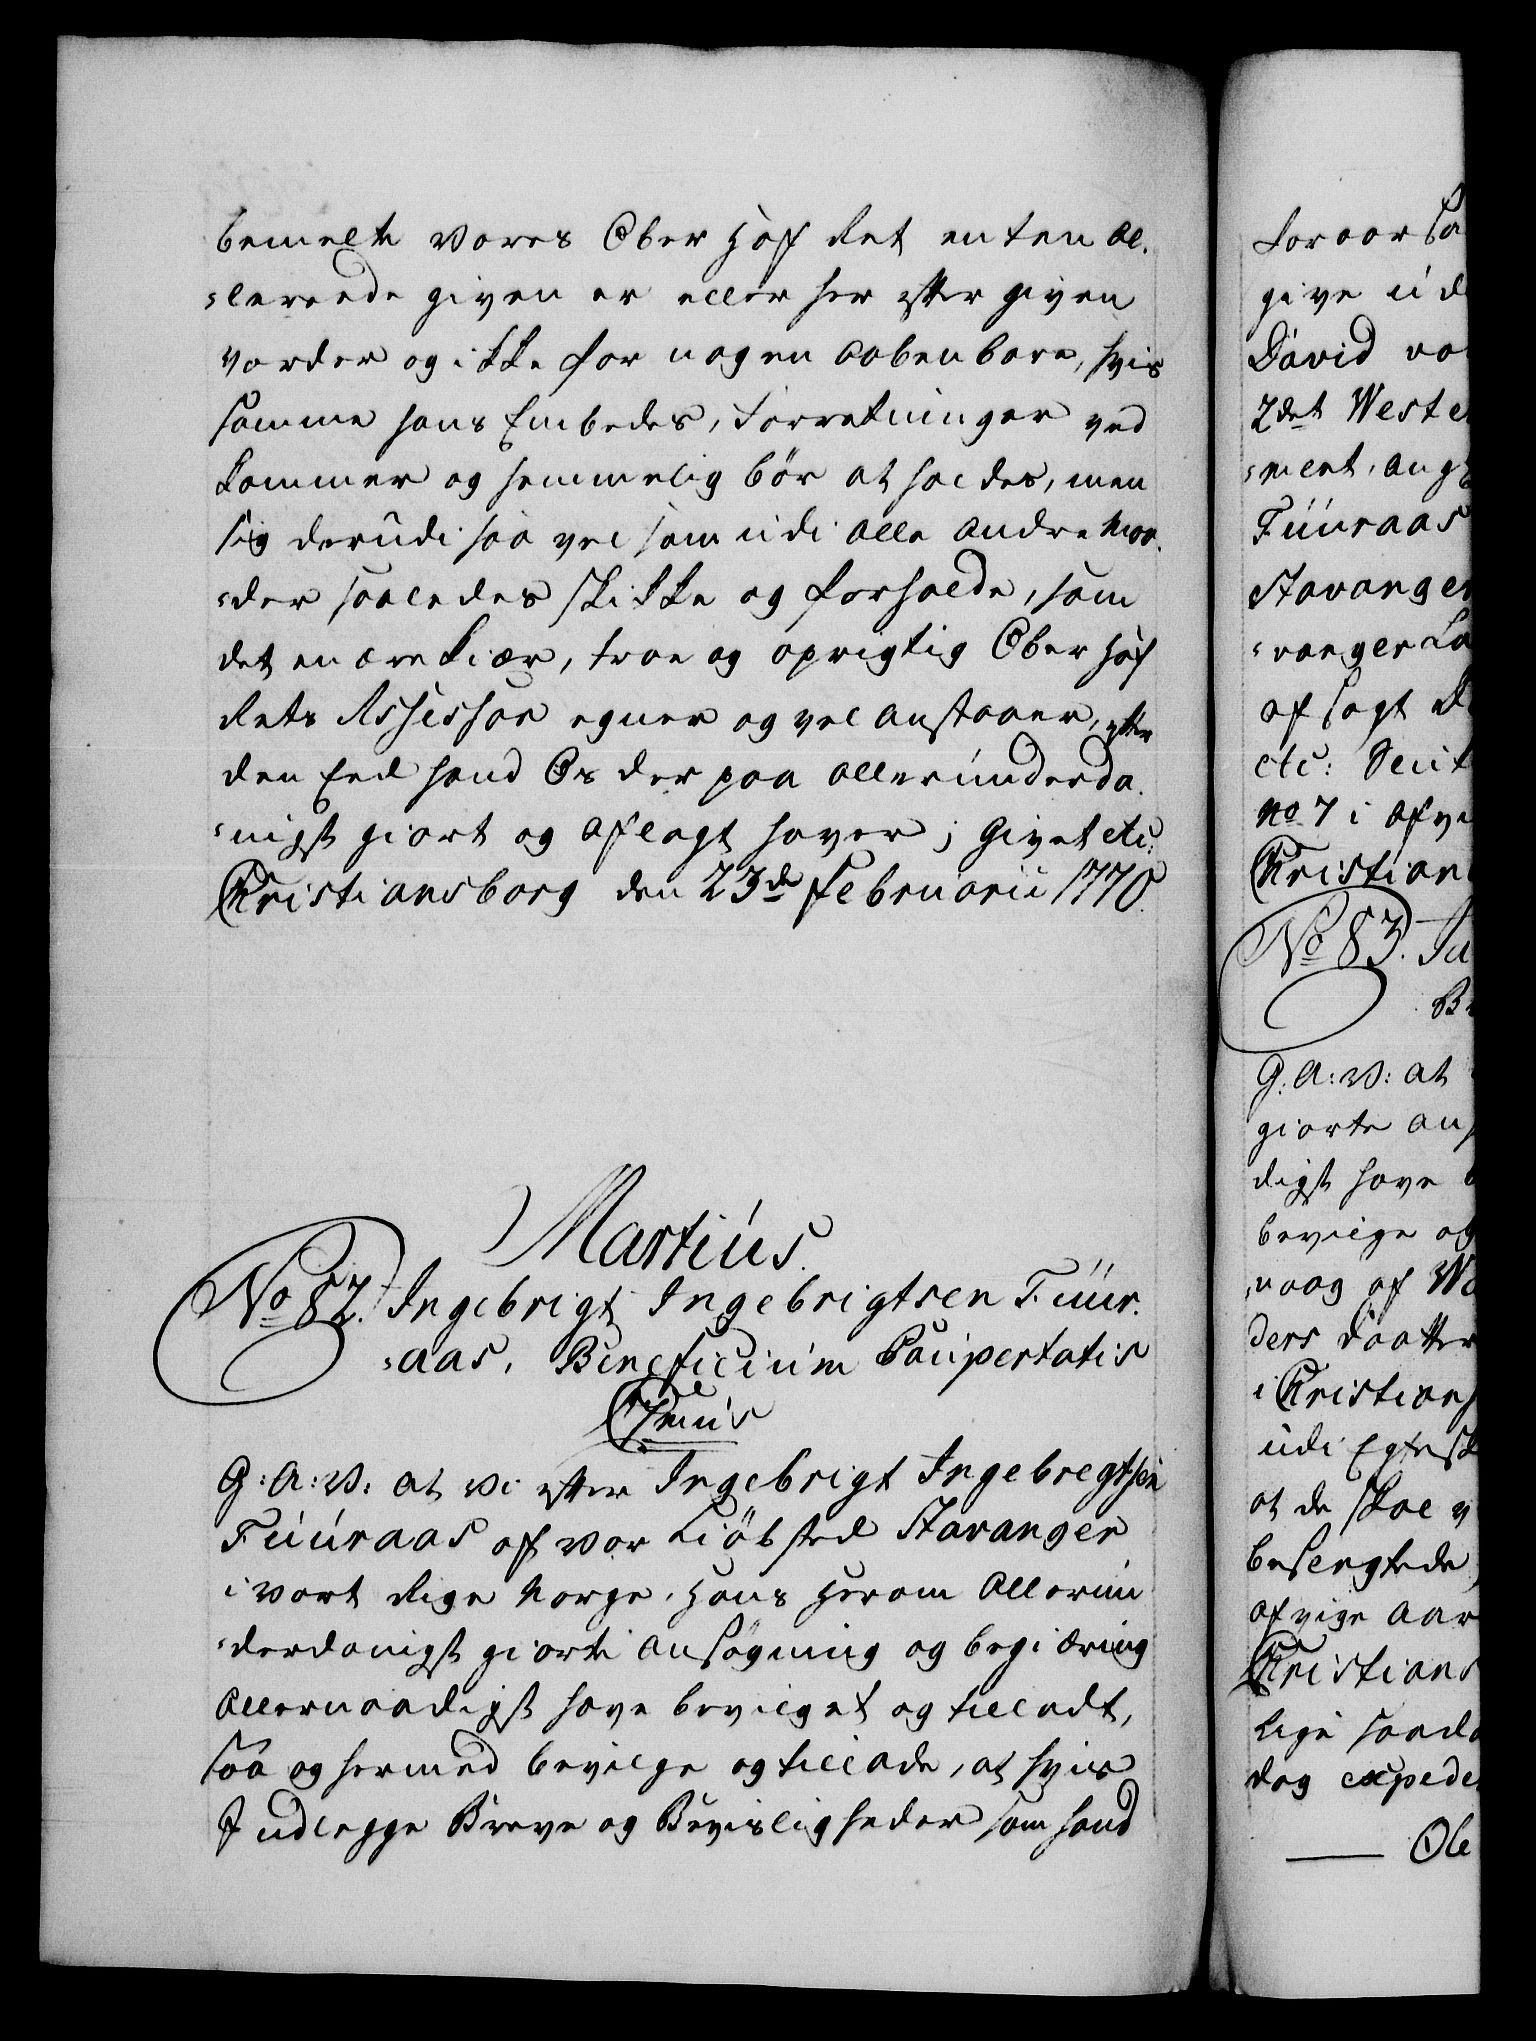 bemelte Vores Ober Hof Ret enten al-
=lereede given er eller her efter given
vorder og ikke for nogen aabenbare, hvis
samme hans Embedes, Forretninger ved
kommer og hemmelig bør at holdes, men
sig derudi saa vel som udi alle andre Maa-
=der saaledes skikke og forholde, som
det en ærekiær, troe og oprigtig Ober Hof
Rets Assessor egner og vel anstaaer, efter
den Eed hand Os derpaa allerunderda-
=nigst giort og aflagt haver; Givet etc:
Christiansborg den 23de Februarii 1770.
Martius.
No 82. Ingebrigt Ingebrigtsen Fuur-
=aas, Beneficium Paupertatis
G: A: V: at Vi efter Ingebrigt Ingebregtsen
Fuuraas af Vor Kiøbsted Stavanger
i Vort Rige Norge, Hans Herom Allerun
=derdanigst giorte Ansøgning og begiæring
Allernaadigst have bevilget og tilladt,
saa og hermed bevilge og tillade, at hvis
Indlegge Breve og Bevisligheder som hand
Foraarsa
give ud
David vo
2det Weste
Fuuraas
Stavanger
=vanger La
afsagt D
etc:
No 7 i
Christian
No 83.
G: A: V: at
giorte an
digst have
bevilge og
af We
ders Daatter
i Christians
udi Egtesk
at de skal v
Christians
Lige saada
dag expede
Ole